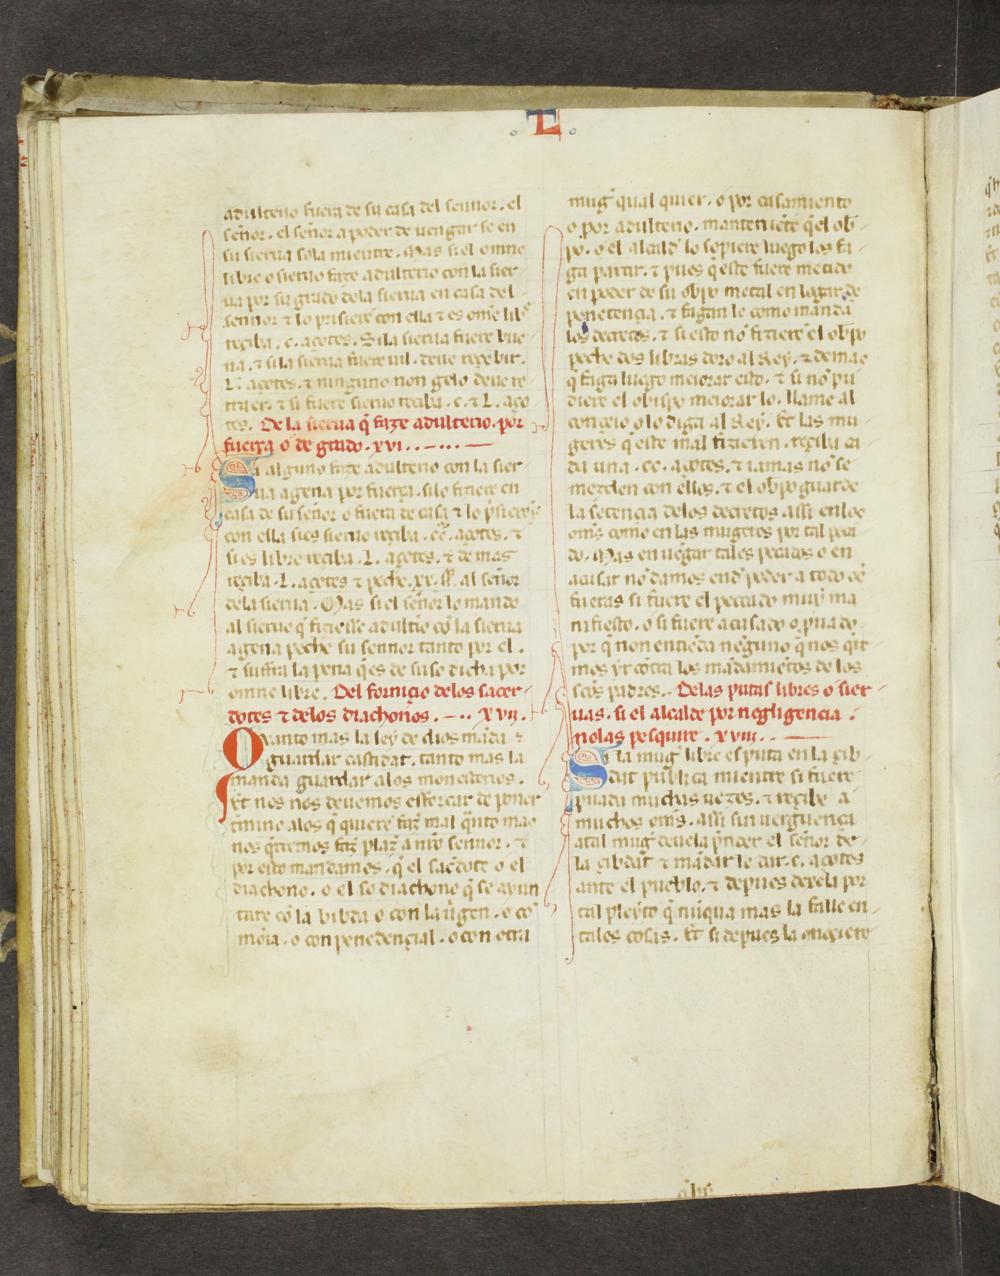 L
adulterio fuera de su casa del sennor. el
señor. el señor a poder de uengar se en
su sierua sola mientre. Mas si el omne
libre o sieruo faze adulterio con la sier
ua por su grado dela sierua en casa del
sennor ⁊ lo prisierē con ella ⁊ es om̄e lib̃
reçiba .c. açotes. Si la sierua fuere bue
na. ⁊ si la sierua fuere uil. deue reçebir.
L. açotes. ⁊ ninguno non gelo deue re
traer. ⁊ si fuere sieruo reciba .c. ⁊ L. aço
tes. De la sierua q̄ faze adulterio. por
fuerça o de grado. xvi.
Si alguno faze adulterio con la sier
ua agena por fuerça. si lo fiziere en
casa de su señor o fuera de casa ⁊ lo p̃sierē
con ella si es sieruo reciba .cc. açotes. ⁊
si es libre reciba .L. açotes. ⁊ de mas
reçiba .L. açotes ⁊ peche .xx. al señor
dela sierua. Mas si el señor lo mando
al sieruo q̃ fiziesse adult̃io cō la sierua
agena peche su sennor tanto por el.
⁊ suffra la pena q̃ es de suso dicha por
omne libre. Del fornicio delos sacer
dotes ⁊ delos diachonos. xvii.
Quanto mas la ley de dios māda
guardar castidat. tanto mas la
manda guardar alos monesterios.
Et nos nos deuemos efforcar de poner
t̃mino alos q̃ quierē faz̃ mal q̃nto mas
nos q̃remos faz̃ plaz̃ a nr̃o sennor. ⁊
por esto mandamos. q̃ el sac̃dote o el
diachono. o el so diachono q̃ se ayun
tare cō la bibda o con la uirgen. o cō
mōia. o con penedençial. o con otra
mug̃ qual quier. o por casamiento
o por adulterio. manteniēte q̃ el ob̃
po. o el alcald̃ lo sopiere luego los fa
ga partir. ⁊ pues q̃ este fuere metido
en poder de su obp̃o metal en logar de
penetencia. ⁊ fagan le como manda
los decretos. ⁊ si esto nō fiziere el obp̃o
peche dos libras doro al Rey. ⁊ demas
q̃ faga luego meiorar esto. ⁊ si nō pu
diere el obispo meiorar lo. llame al
conçeio o lo diga al Rey. Et las mu
geres q̃ este mal fizieren. reçiba ca
da una .cc. açotes. ⁊ iamas nō se
mezclen con ellos. ⁊ el obp̃o guarde
la setencia delos decretos. assi en los
om̄s como en las mugeres por tal peca
do. Mas en uēgar tales pecados o en
acusar nō damos end̃ poder a todo oē
fueras si fuere el peccado muy ma
nifiesto. o si fuere acusado o p̃uado
por q̃ non entiēda nēguno q̃ nos q̃re
mos yr cōtra los mādamiētos de los
scōs padres. Delas putas libres o sier
uas. si el alcalde por negligencia
nolas pesquire. xviii.
Si la mug̃ libre es puta en la çib
dat publica mientre si fuere
p̃uada muchas uezes. ⁊ reçibe a
muchos om̄s. assi sin uergũença
atal mug̃ deuela p̃nder el señor de
la çibdat ⁊ mādar le dar .c. açotes
ante el pueblo. ⁊ depues dexela por
tal pleyto q̃ nūqua mas la falle en
tales cosas. Et si depues la